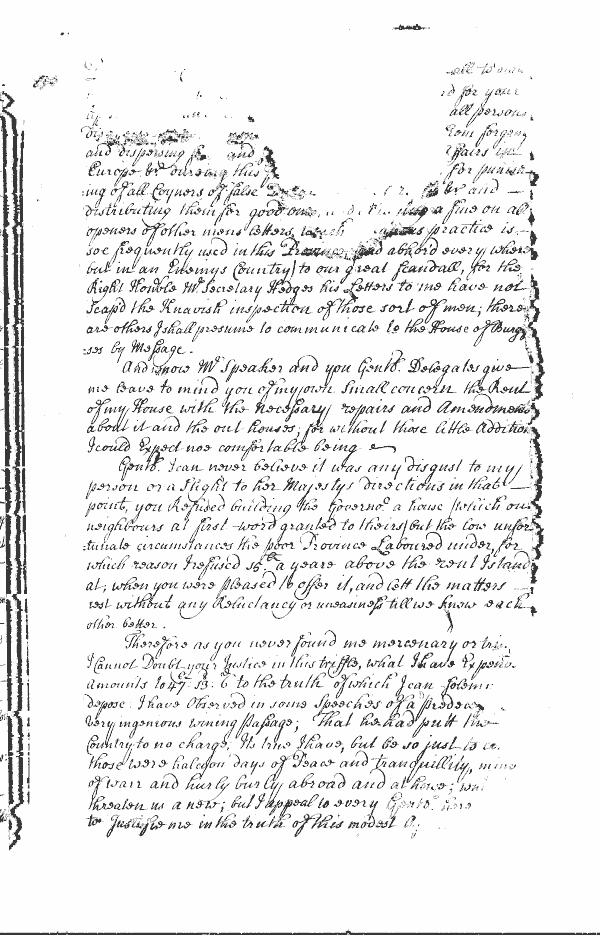 all to own
d for your
all persons
from forging
and dispersing and affairs
Europe &c during this for punish
ing of all Coyners of false and
distributing them for good ones, a fine on all
openers of other mens Letters, which practice is
soe frequently used in this Province and abhor'd every where
but in an Enemys Country) to our great scandall, for the
Right Honble Mr Secretary Hedges his Letters to me have not
scap'd the Knavish inspection of those sort of men; there
are others I shall presume to communicate to the House of Burg
ses by Message.
And now Mr Speaker and you Gentn. Delegates give
me leave to mind you of my own small concern the Rent
of my House with the necessary repairs and Amendments
about it and the out houses; for without those little Addition
I could Expect noe comfortable being
Gentn. I can never believe it was any disgust to my
person or a slight to her Majestys directions in that
point, you Refused building the Governor a house (which our
neighbours at first word granted to theirs) but the low unfor
tunate circumstances the poor Province Laboured under, for
which reason I refused a yeare above the rent I stand
at; when you were pleased to offer it, and lett the matters
rest without any Reluctancy or uneasiness till we knew each
other better.
Therefore as you never found me mercenary or
I Cannot Doubt your Justice in this triffle, what I have Expend
amounts to 47: 13: 6 to the truth of which I can solemn
depose. I have Observed in some Speeches of a predec
very ingenious wining passage; That he had putt the
Country to no charge, Its true I have, but be so just to
those were halcyon days of Peace and tranquillity, mine
of warr and hurly burly, abroad and at home;
threaten us a new; but I appeal to every Gentn. here
to Justifie me in the truth of this modest